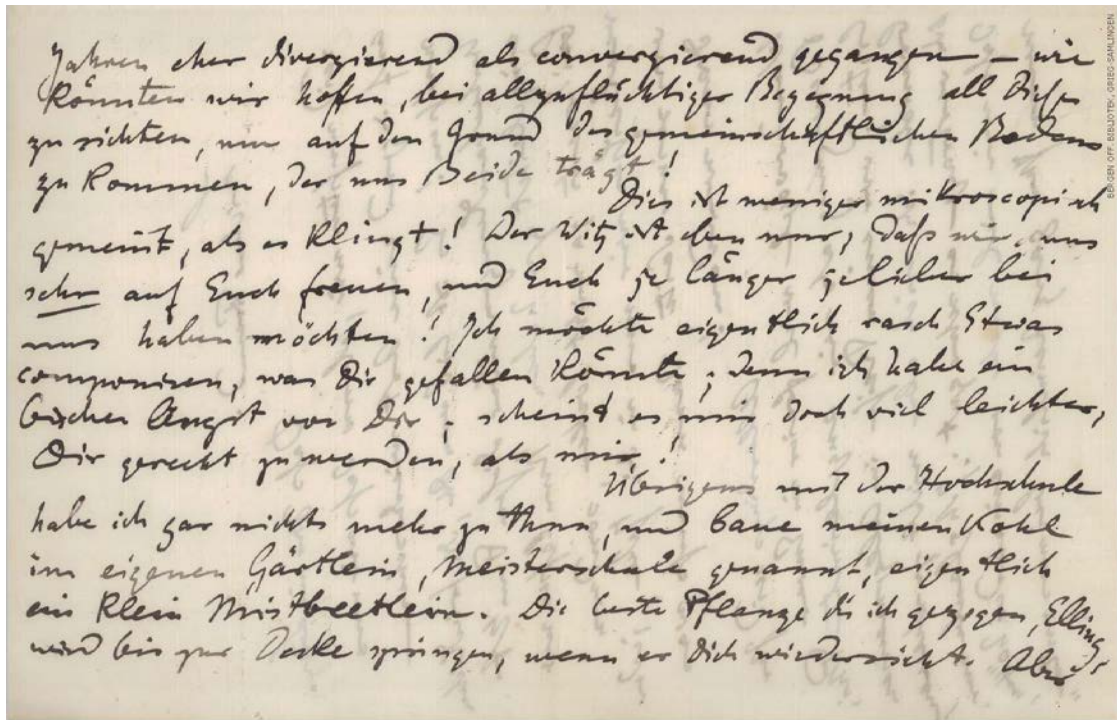 Jahren eher divergierend als convergierend gegangen – wie
könnten wir hoffen, bei allzuflüchtiger Begegnung all dieses
zu sichten, um auf den Grund des gemeinschaftlichen Bodens
zu kommen, der uns Beide trägt!
Dies ist weniger mikroscopisch
gemeint, als es klingt! Der Witz ist eben nur, daß wir uns
sehr auf Euch freuen, und Euch je länger je lieber bei
uns haben möchten! Ich möchte eigentlich rasch Etwas
componiren, was Dir gefallen könnte; denn ich habe ein
bischen Angst vor Dir; scheint es mir doch viel leichter,
Dir gerecht zu werden, als mir!
Übrigens mit der Hochschule
habe ich gar nichts mehr zu thun, und baue meinen Kohl
im eigenen Gärtlein, Meisterschule genannt, eigentlich
ein klein Mistbeetlein. Die beste Pflanze die ich gezogen, Elling,
wird bis zur Decke springen, wenn er Dich wiedersieht. Aber
BERGEN OFF. BIBLIOTEK, GRIEG-SAMLINGEN